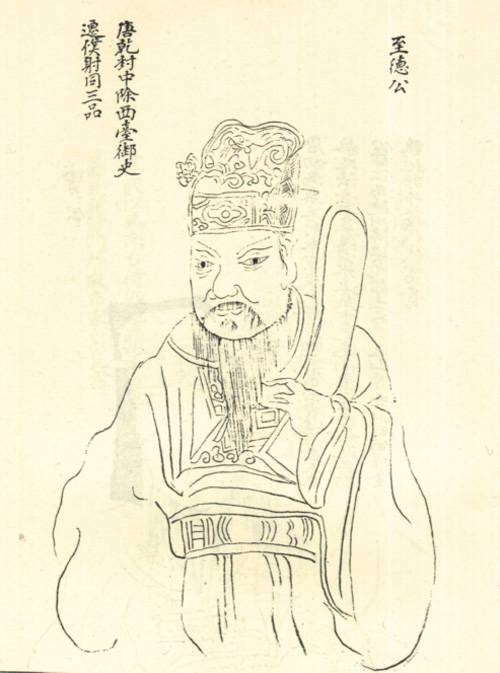 至德公
唐乾封中除西臺御史
遷僕射同三品